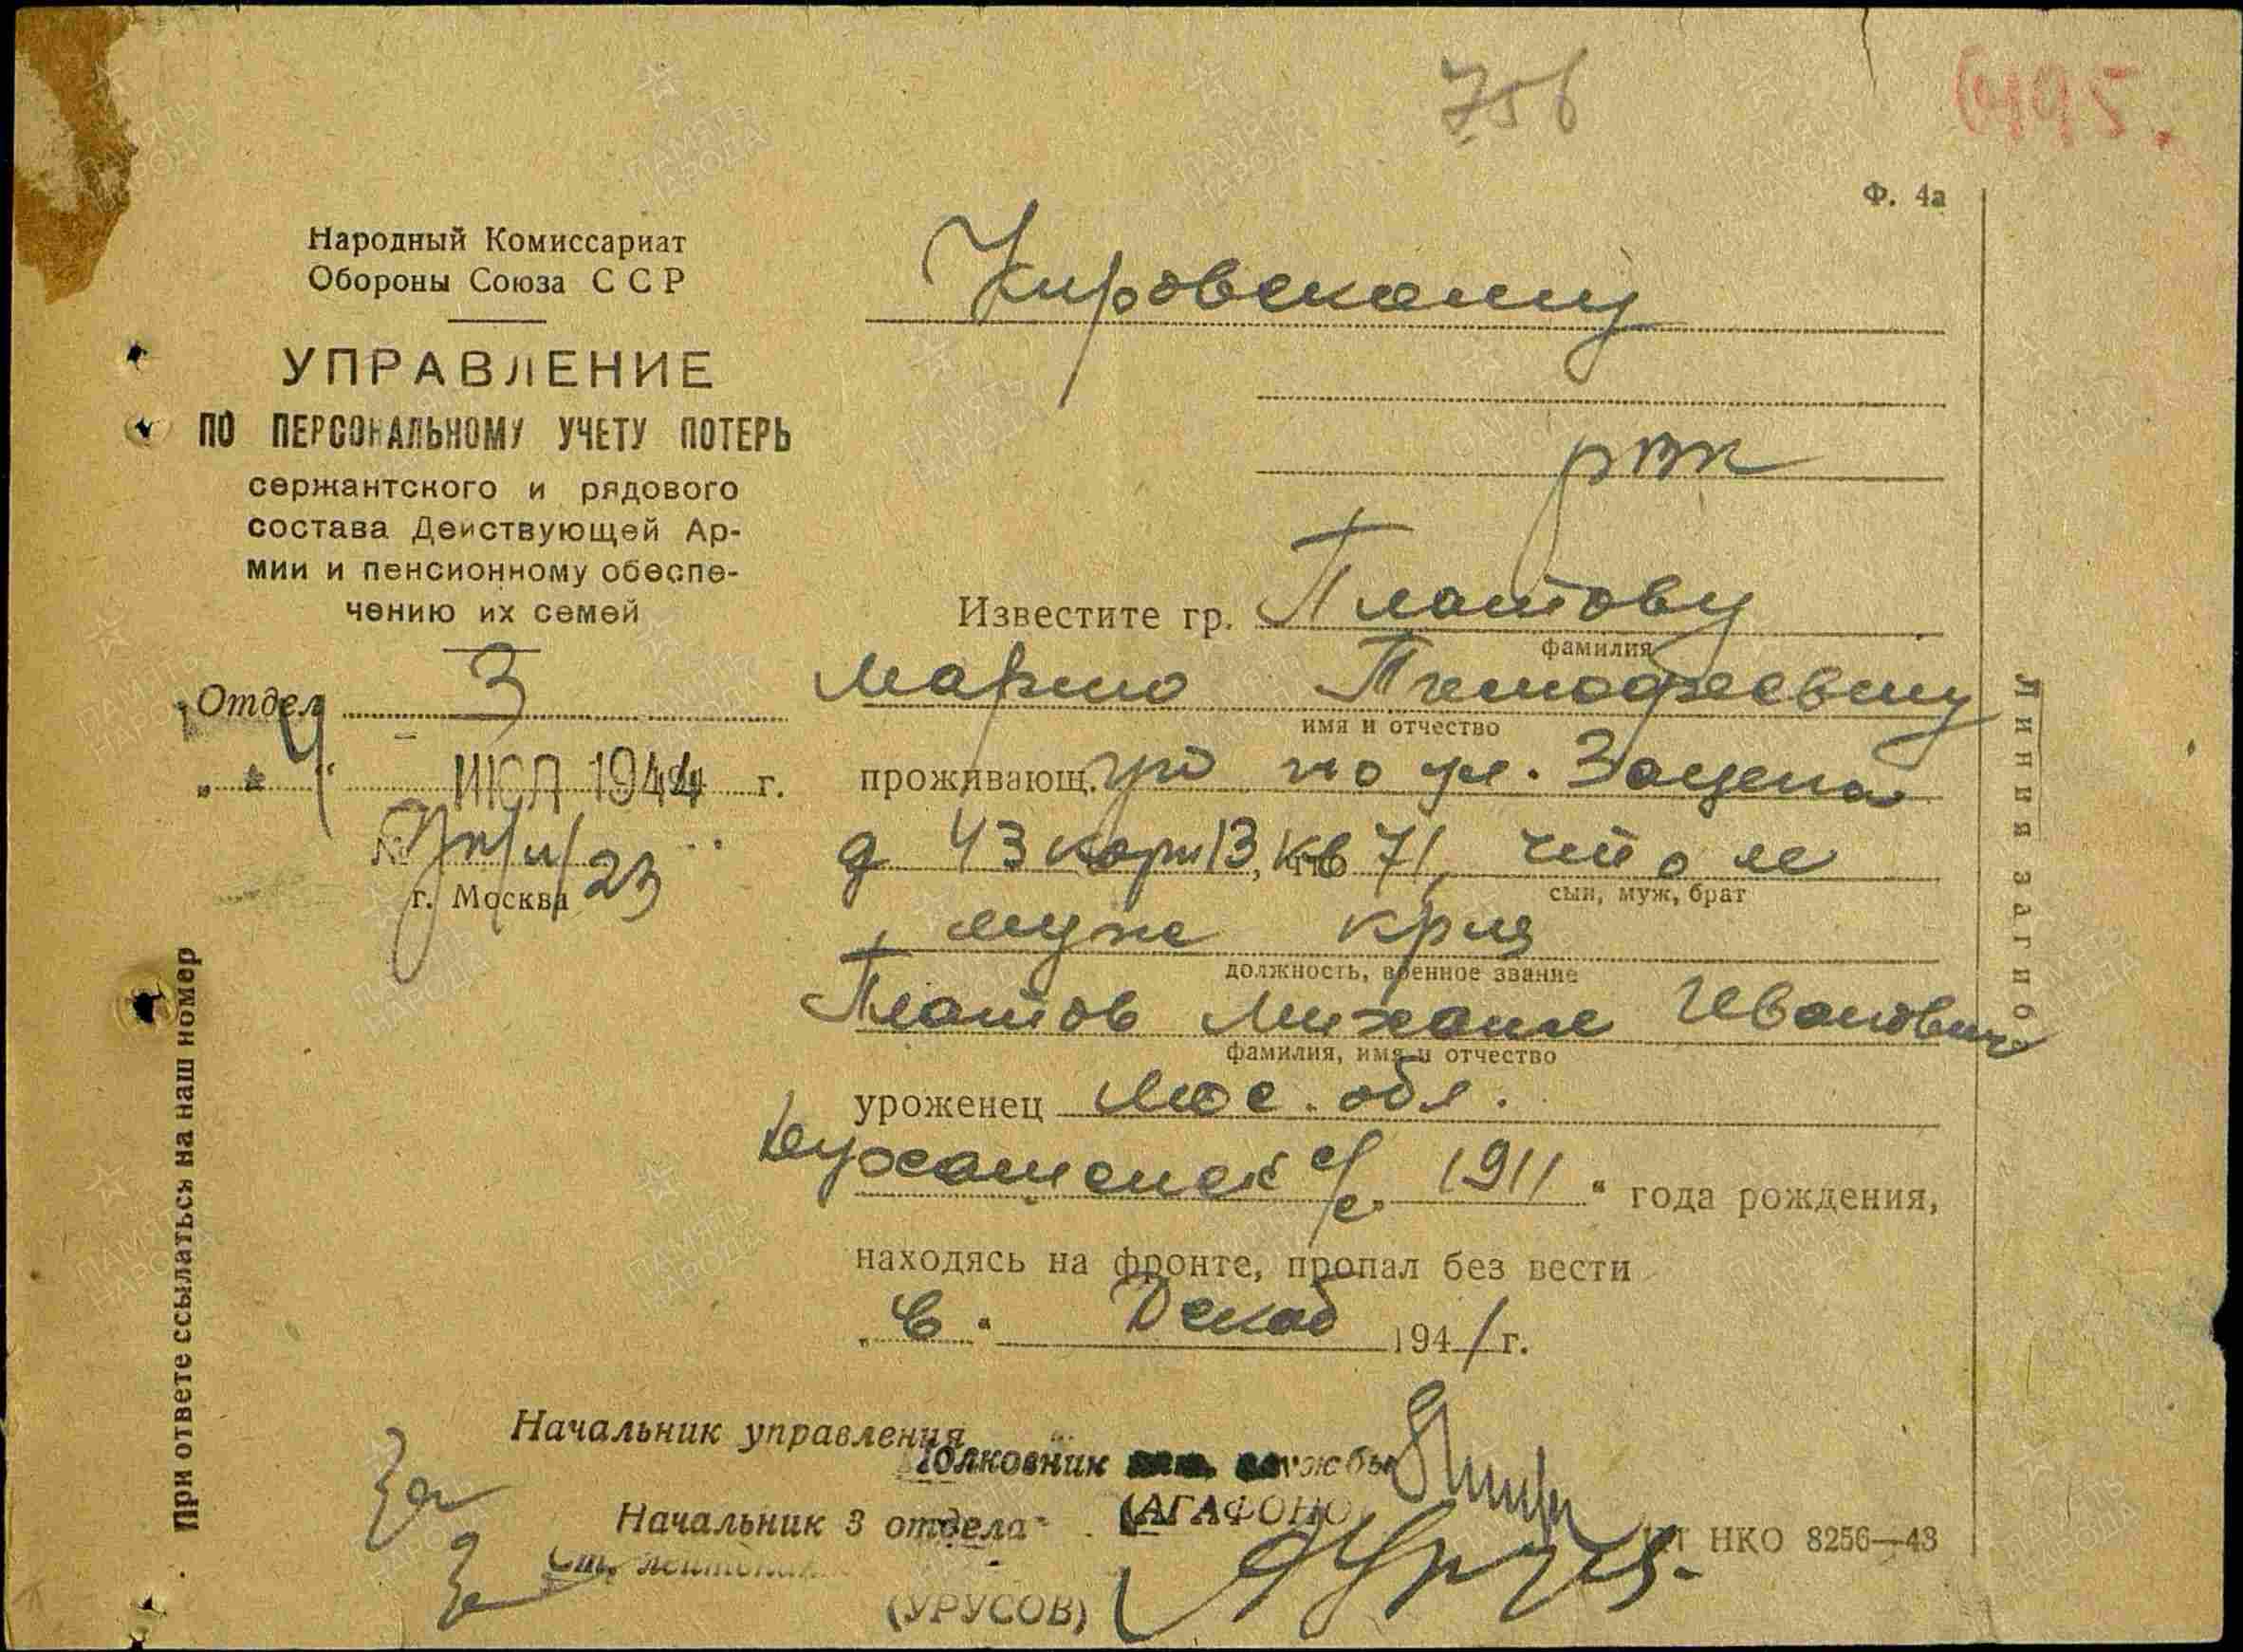 756
Ф. 4а
Народный Комиссариат
Обороны Союза ССР
УПРАВЛЕНИЕ
ПО ПЕРСОНАЛЬНОМУ УЧЕТУ ПОТЕРЬ
сержантского и рядового
состава Действующей Ар-
мии и пенсионному обеспе-
чению их семей
Отдел 3
" 4 " ИЮЛ 1944 г.
№
23
г. Москва
При ответе ссылаться на наш номер
Кировскому
рвк
Известите гр. Платову
фамилия
Марию Тимофеевну
имя и отчество
проживающ.ую по ул. Зацепа
д 43 корп 13, кв 71, что ее
сын, муж, брат
муж кр-ц
должность, военное звание
Платов Михаил Иванович
фамилия, имя и отчество
уроженец Мос. обл.
с/с. 1911 " года рождения,
находясь на фронте, пропал без вести
" в " Декаб 1941 г.
Начальник управления
Полковник службы
(АГАФОНО
За
Начальник 3 отдела
За
Ст. лейтенан
(УРУСОВ)
НКО 8256—43
Линия загиба
ПАМЯТЬ НАРОДА